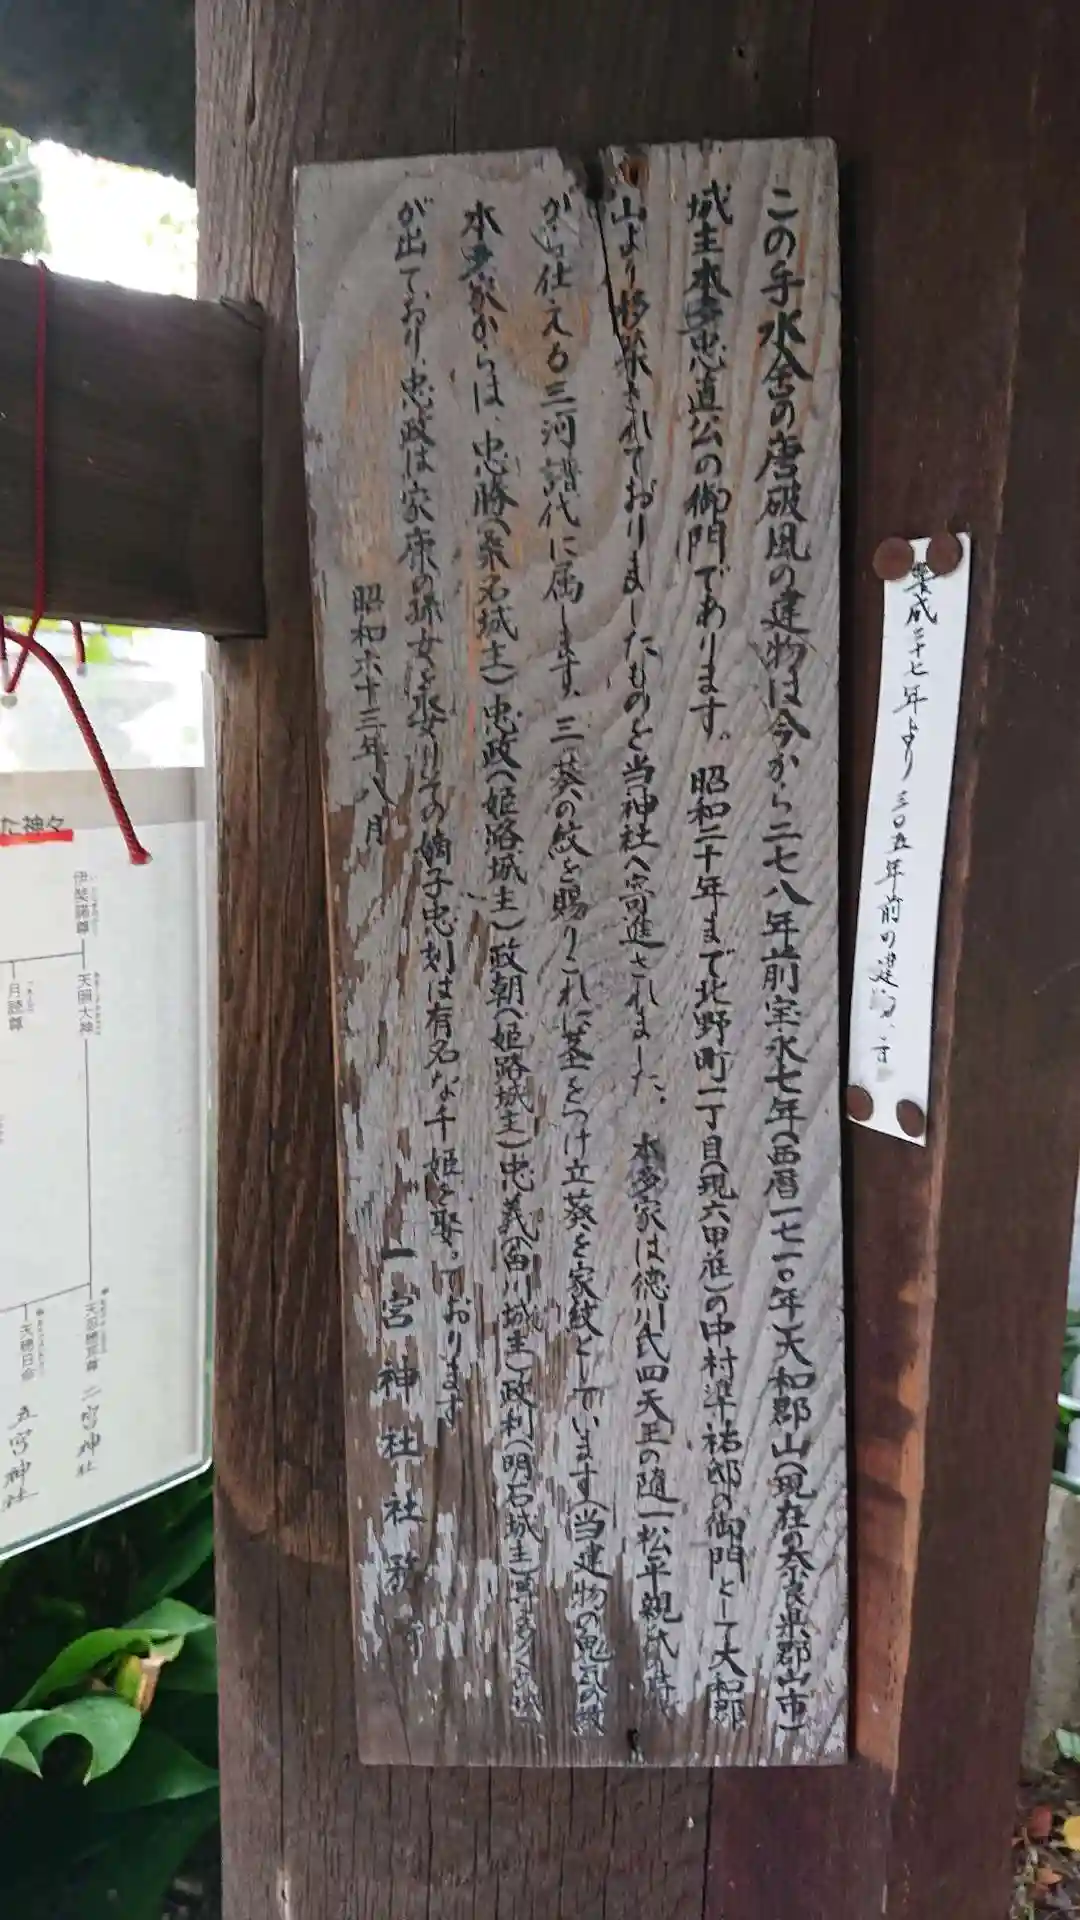 この手水舎の唐破風の建物は今から二七八年前宝永七年(西暦一七一〇年)大和郡山(現在の奈良県郡山市)
城主本多忠道公の御門であります。昭和二十年まで北野町一丁目(現六甲荘)の中村準祐邸の御門として大和郡
山より移築されておりましたものを当神社へ寄進されました。本多家は徳川氏四天王の随一松平親氏の時
から仕える三河譜代に属します、三葵の紋を賜りこれに茎をつけ立葵を家紋としています(当建物の鬼瓦の紋
本多家からは、忠勝(桑名城主)忠政(姫路城主)政朝(姫路城主)忠義(白川城主)政利(明石城主)等多くの城
が出ており、忠政は家康の孫女を娶りその嫡子忠刻は有名な千姫を娶っております
昭和六十三年八月
一宮神社社務所
平成二十七年より三〇五年前の建物
た神々
伊奘諾尊
天照大神
月読尊
天忍穂耳尊 二宮神社
天穂日命 五宮神社